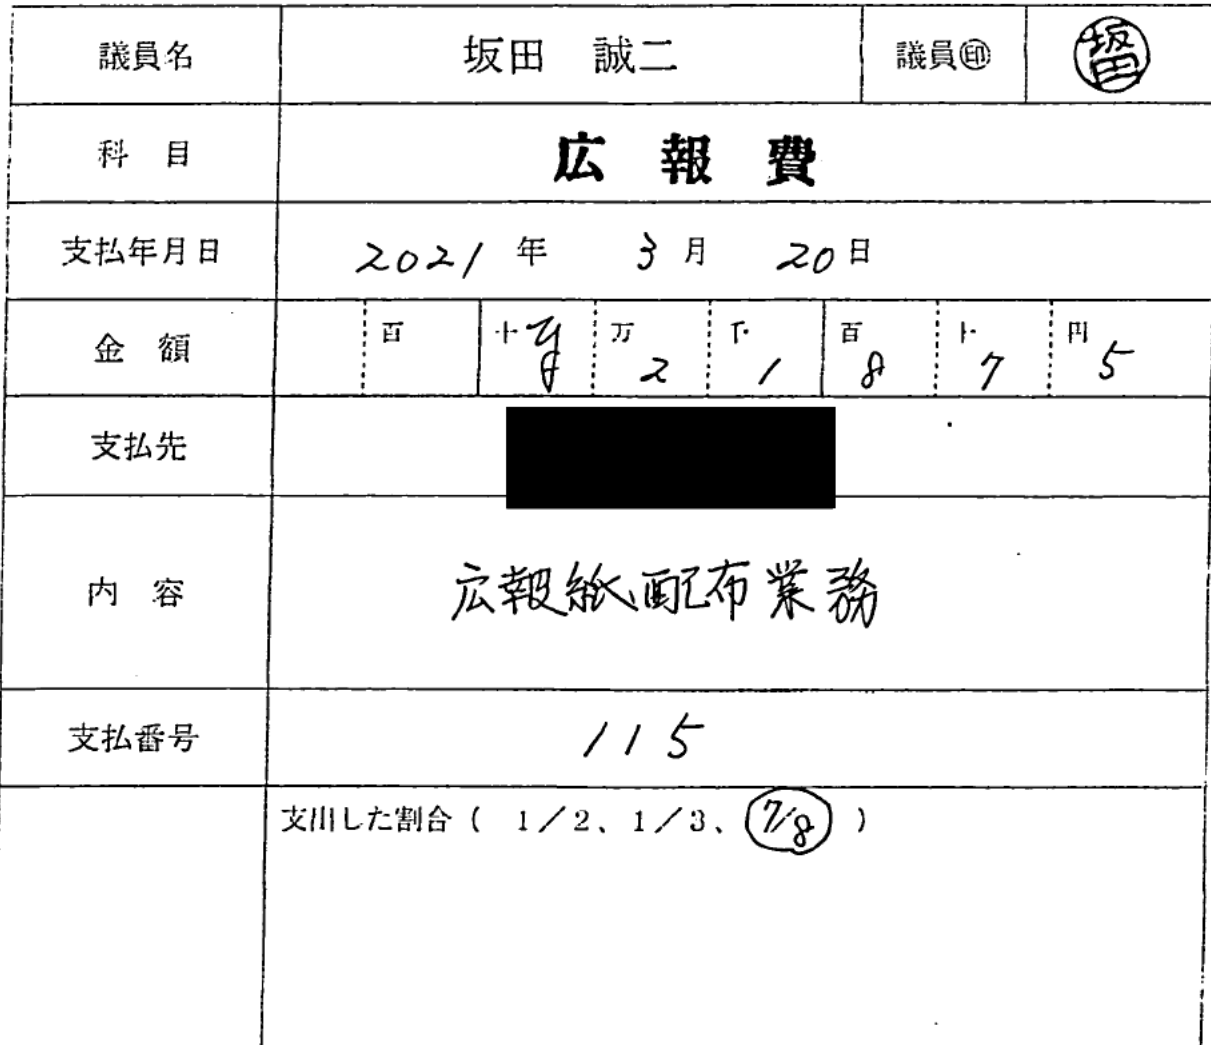 議員名 坂田 誠二 議員㊞ 坂田
科目 広報費
支払年月日 2021年 3月 20日
金額 百 十 万 千 百 十 円
¥ 2 1 8 7 5
支払先
内容 広報紙配布業務
支払番号 115
支出した割合( 1/2、1/3、7/8 )